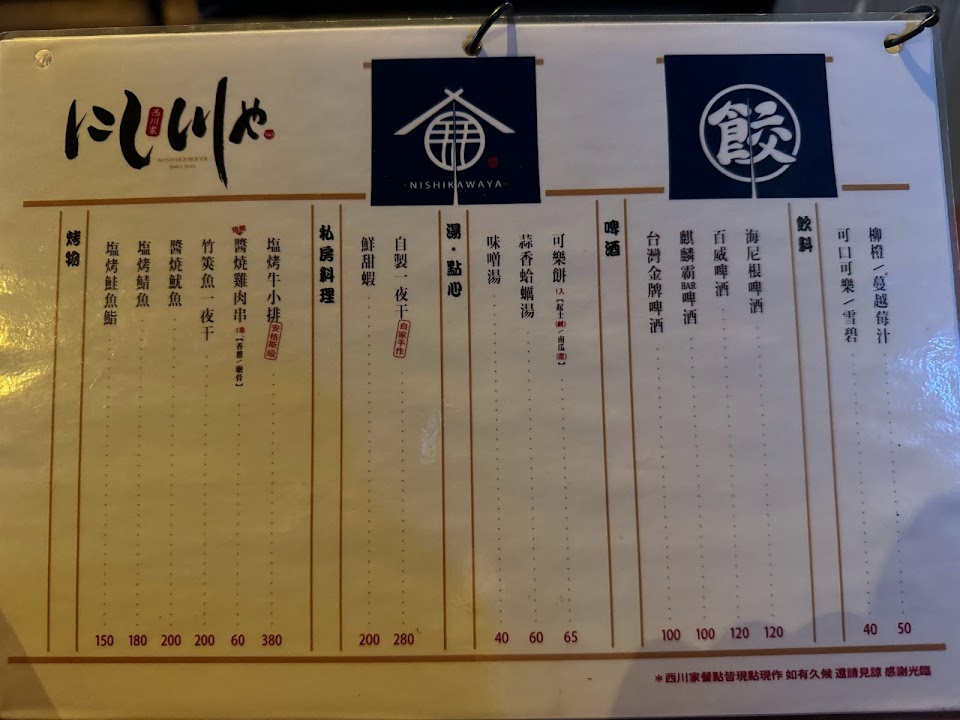 にし川や
西川家
NISHIKAWAYA
·NISHIKAWAYA·
餃
飲料
柳橙/蔓越莓汁 50
可口可樂/雪碧 40
啤酒
海尼根啤酒 120
百威啤酒 120
麒麟霸BAR啤酒 100
台灣金牌啤酒 100
湯·點心
可樂餅 1入【起士(鹹)/南瓜(甜)】 65
蒜香蛤蠣湯 60
味噌湯 40
私房料理
自製一夜干 自家手作 280
鮮甜蝦 200
烤物
塩烤牛小排 安格斯級 380
醬燒雞肉串 1串【香蔥/雞骨】 60
竹筴魚一夜干 200
醬燒魷魚 200
塩烤鯖魚 180
塩烤鮭魚鮨 150
*西川家餐點皆現點現作 如有久候 還請見諒 感謝光臨